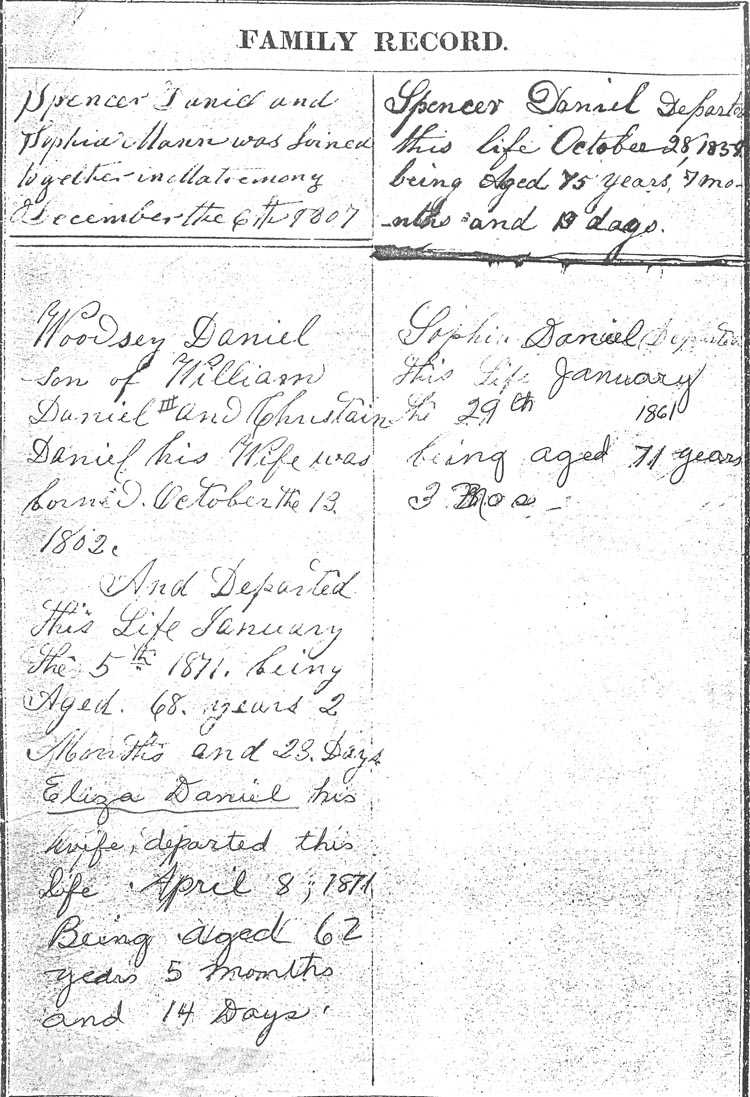 FAMILY RECORD.
Spencer Daniel and
Sophia Mann was Joined
together in Matrimony
December the 6th 1807
Woodsey Daniel
son of William
Daniel III and Christain
Daniel his Wife was
borned. October the 13
1802.
And Departed
this Life January
the 5th 1871. being
Aged. 68. years 2
Months and 23. Days
Eliza Daniel his
wife, departed this
life April 8, 1871
Being aged 62
years 5 months
and 14 Days.
Spencer Daniel Departed
this life October 28, 1838
being Aged 75 years, 7 mo-
nths and days.
Sophia Daniel Departed
this Life January
the 29th 1861
being aged 71 years
3 Mos